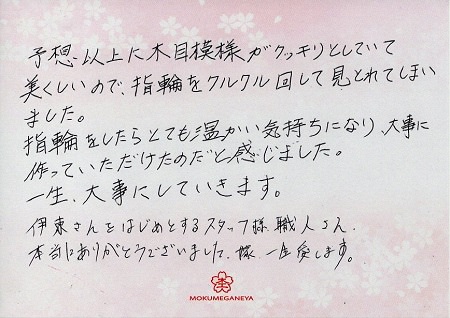 予想以上に木目模様がクッキリとしていて
美くしいので、指輪をクルクル回して見とれてしまい
ました。
指輪をしたらとても温かい気持ちになり、大事に
作っていただけたのだと感じました。
一生、大事にしていきます。
伊東さんをはじめとするスタッフ様、職人さん、
本当にありがとうございました。嫁、一生愛します。
MOKUMEGANEYA